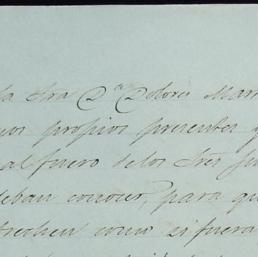 la Sra Dª Dolores Mar
propios presentes y
al fuero de los Sres Ju
deban conocer, para qu
trechen como si fuera